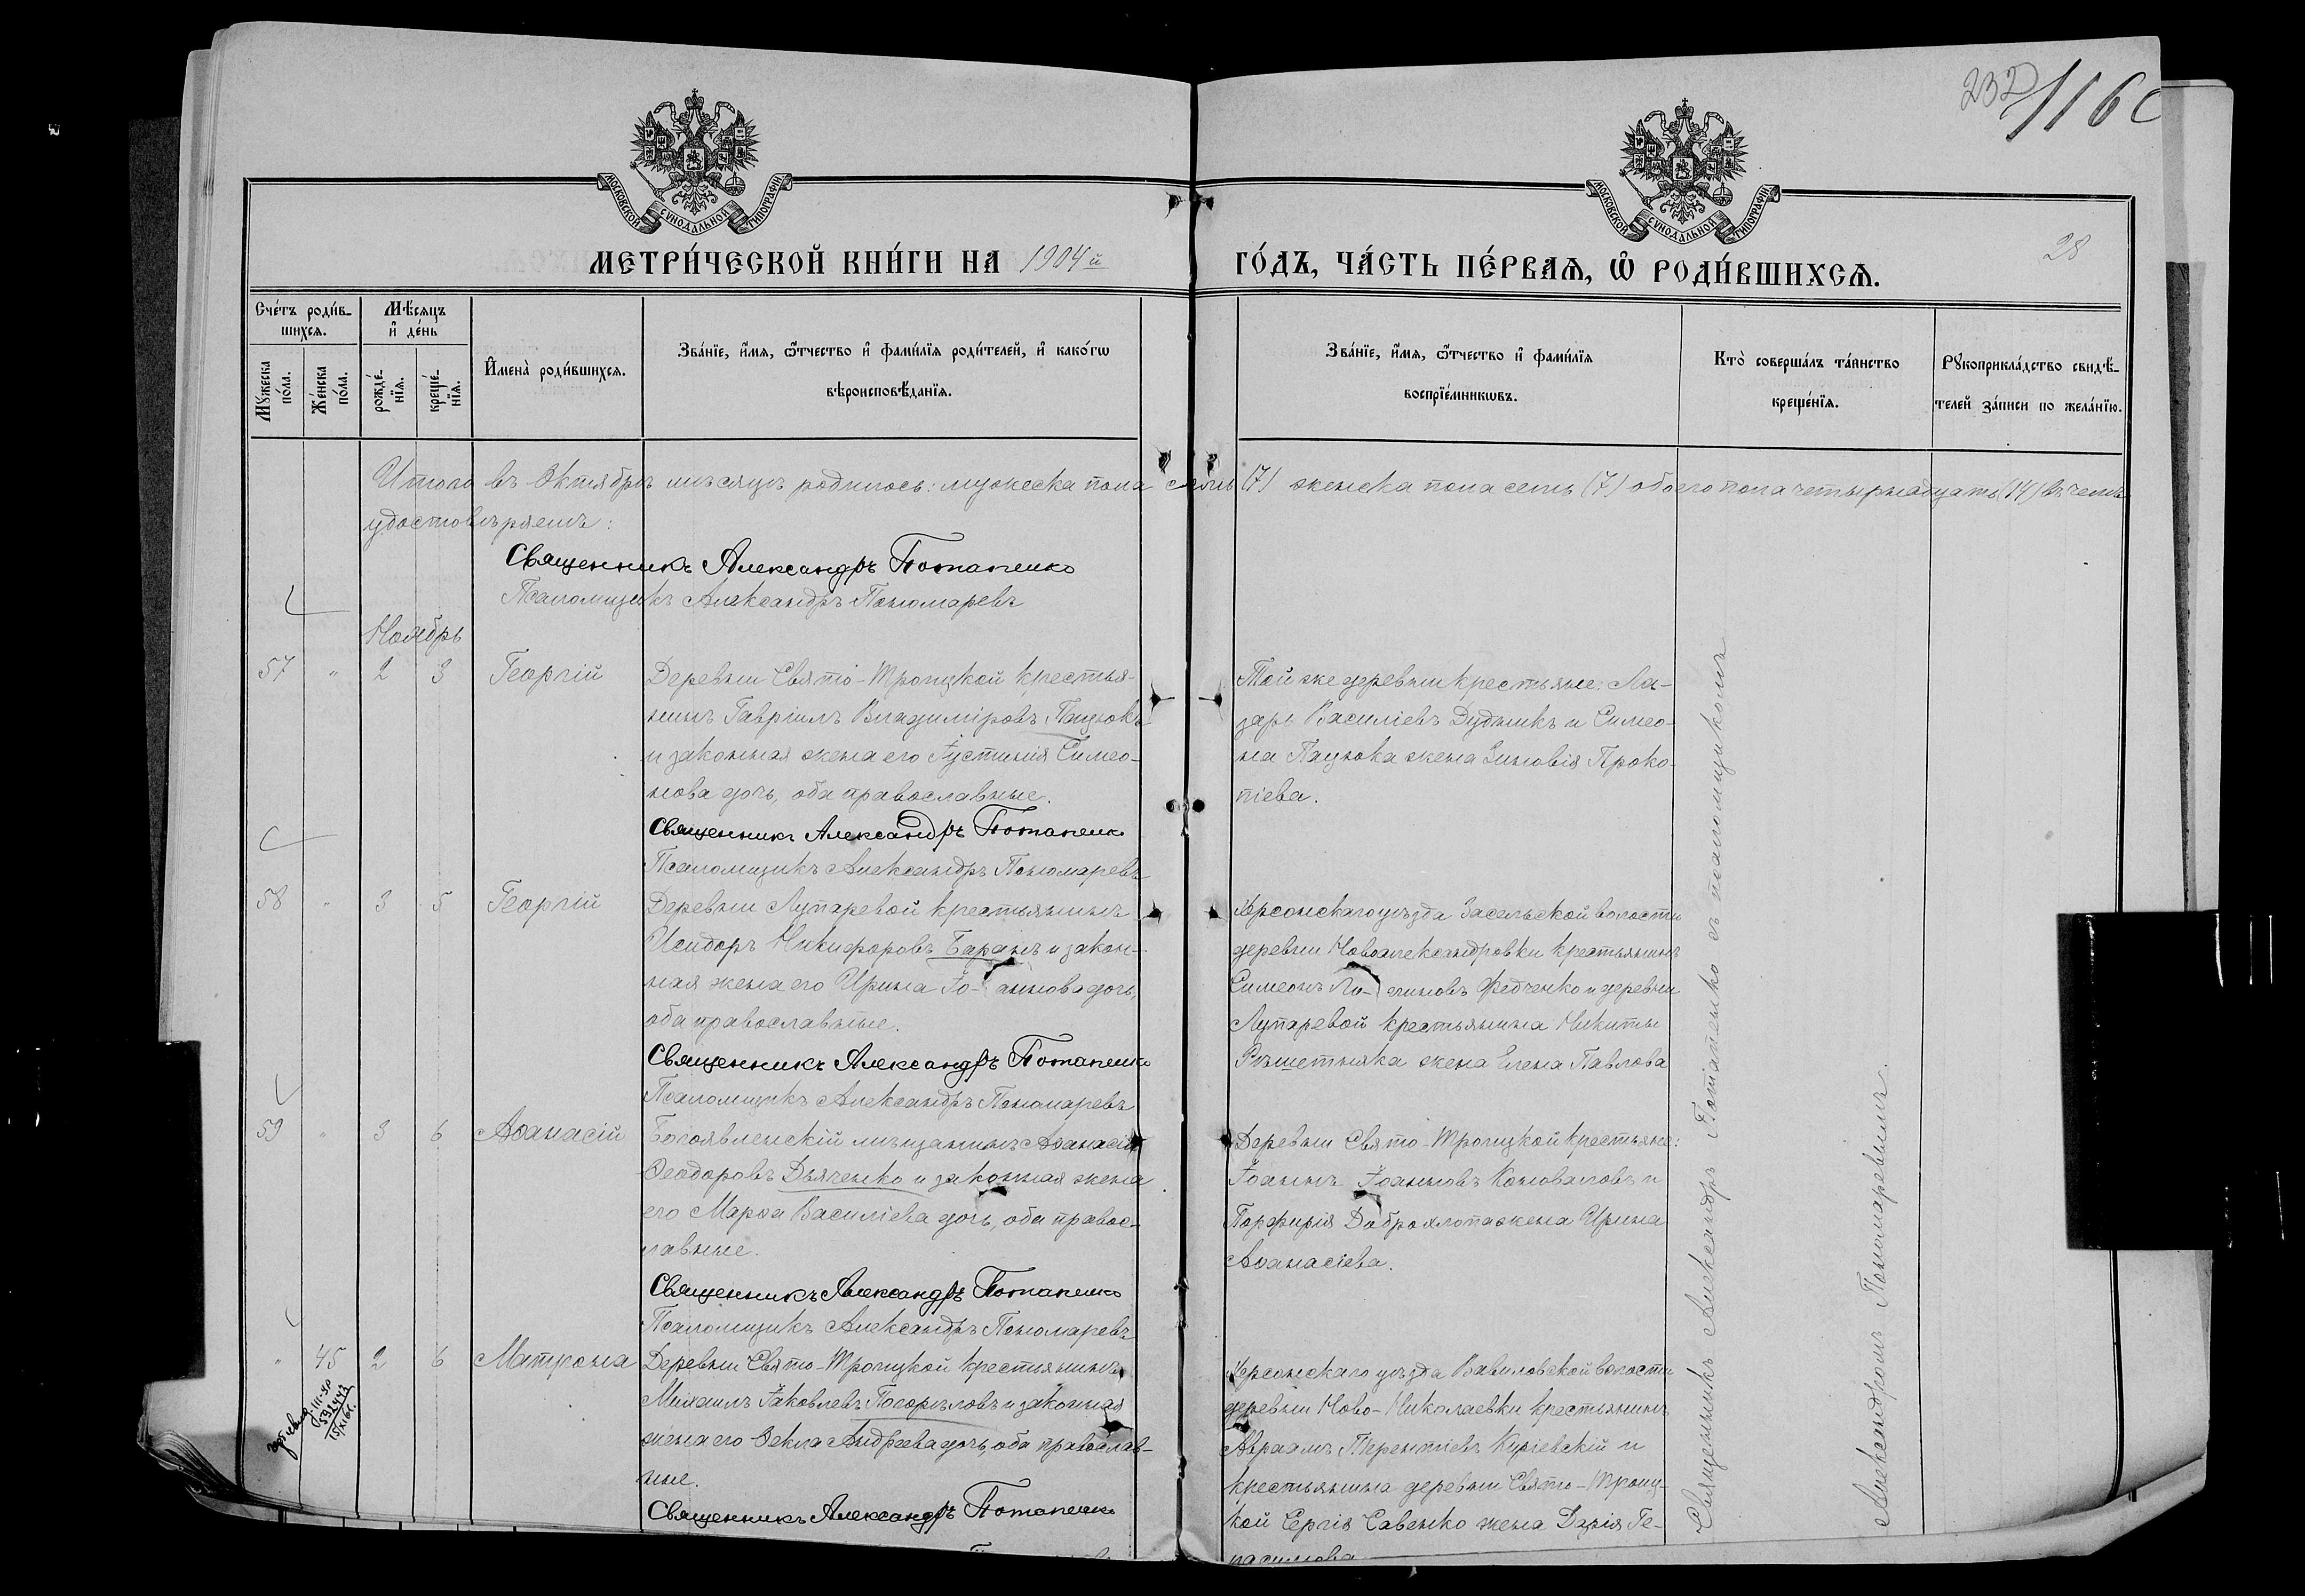 232
116
28
МОСКОВСКОЙ СУНОДАЛЬНОЙ ТИПОГРАФІИ
МОСКОВСКОЙ СУНОДАЛЬНОЙ ТИПОГРАФІИ
МЕТРИ́ЧЕСКОЙ КНИ́ГИ НА 1904й ГО́ДЪ, ЧА́СТЬ ПЕ́РВАЯ, Ѡ РОДИ́ВШИХСЯ.
Сче́тъ роди́в-
шихся.
Мꙋжеска по́ла.
Же́нска по́ла.
Мѣ́сяцъ
и҆ де́нь
рожде́-
нїя.
креще́-
нїя.
И҆мена̀ роди́вшихся.
Зва́нїе, и҆́мя, ѻ҆́тчество и҆ фами́лїя роди́телей, и҆ како́гѡ
вѣроисповѣ́данїя.
Зва́нїе, и҆́мя, ѻ҆́тчество и҆ фами́лїя
воспрїе́мникѡвъ.
Кто̀ соверша́лъ та́инство
креще́нїя.
Рꙋкоприкла́дство свидѣ́-
телей за́писи по жела́нїю.
Итого въ Октябрѣ мѣсяцѣ родилось: мужеска пола семь (7) женска пола семь (7) обоего пола четырнадцать (14) въ чемъ
удостовѣряемъ:
Священникъ Александръ Потапенко
Псаломщикъ Александръ Пономаревъ
Ноябрь
57 " 2 3 Георгій
Деревни Свято-Троицкой крестья-
нинъ Гавріилъ Владиміровъ Пацюкъ
и законная жена его Іустинія Симео-
нова дочь, оба православные.
Священникъ Александръ Потапенко
Псаломщикъ Александръ Пономаревъ
Той же деревни крестьяне: Ла-
зарь Василіевъ Дудникъ и Симео-
на Пацюка жена Зиновія Проко-
піева.
58 " 3 5 Георгій
Деревни Лупаревой крестьянинъ
Исидоръ Никифоровъ Баранъ и закон-
ная жена его Ирина Іо-аннова дочь,
оба православные.
Священникъ Александръ Потапенко
Псаломщикъ Александръ Пономаревъ
Херсонскаго уѣзда Засельской волости
деревни Новоалександровки крестьянинъ
Симеонъ Федченко и деревни
Лупаревой крестьянина Никиты
Рѣшетняка жена Елена Павлова
59 " 3 6 Аѳанасій
Богоявленскій мѣщанинъ Аѳанасій
Ѳеодоровъ Дьяченко и законная жена
его Марѳа Василіева дочь, оба правос-
лавные.
Священникъ Александръ Потапенко
Псаломщикъ Александръ Пономаревъ
Деревни Свято-Троицкой крестьяне:
Іоаннъ Іоанновъ Коноваловъ и
Порфирія Доброхлопа жена Ирина
Аѳанасіева.
" 45 2 6 Матрона
Деревни Свято-Троицкой крестьянинъ
Михаилъ Іаковлевъ Погорѣловъ и законная
жена его Ѳекла Андреева дочь, оба православ-
ные.
Священникъ Александръ Потапенко
Херсонскаго уѣзда Вавиловской волости
деревни Ново-Николаевки крестьянинъ
Авраамъ Терентіевъ Куріевскій и
крестьянина деревни Свято-Троиц-
кой Сергія Савенко жена Дарія Ге-
расимова
Священникъ Александръ Потапенко съ псаломщикомъ
Александромъ Пономаревымъ.